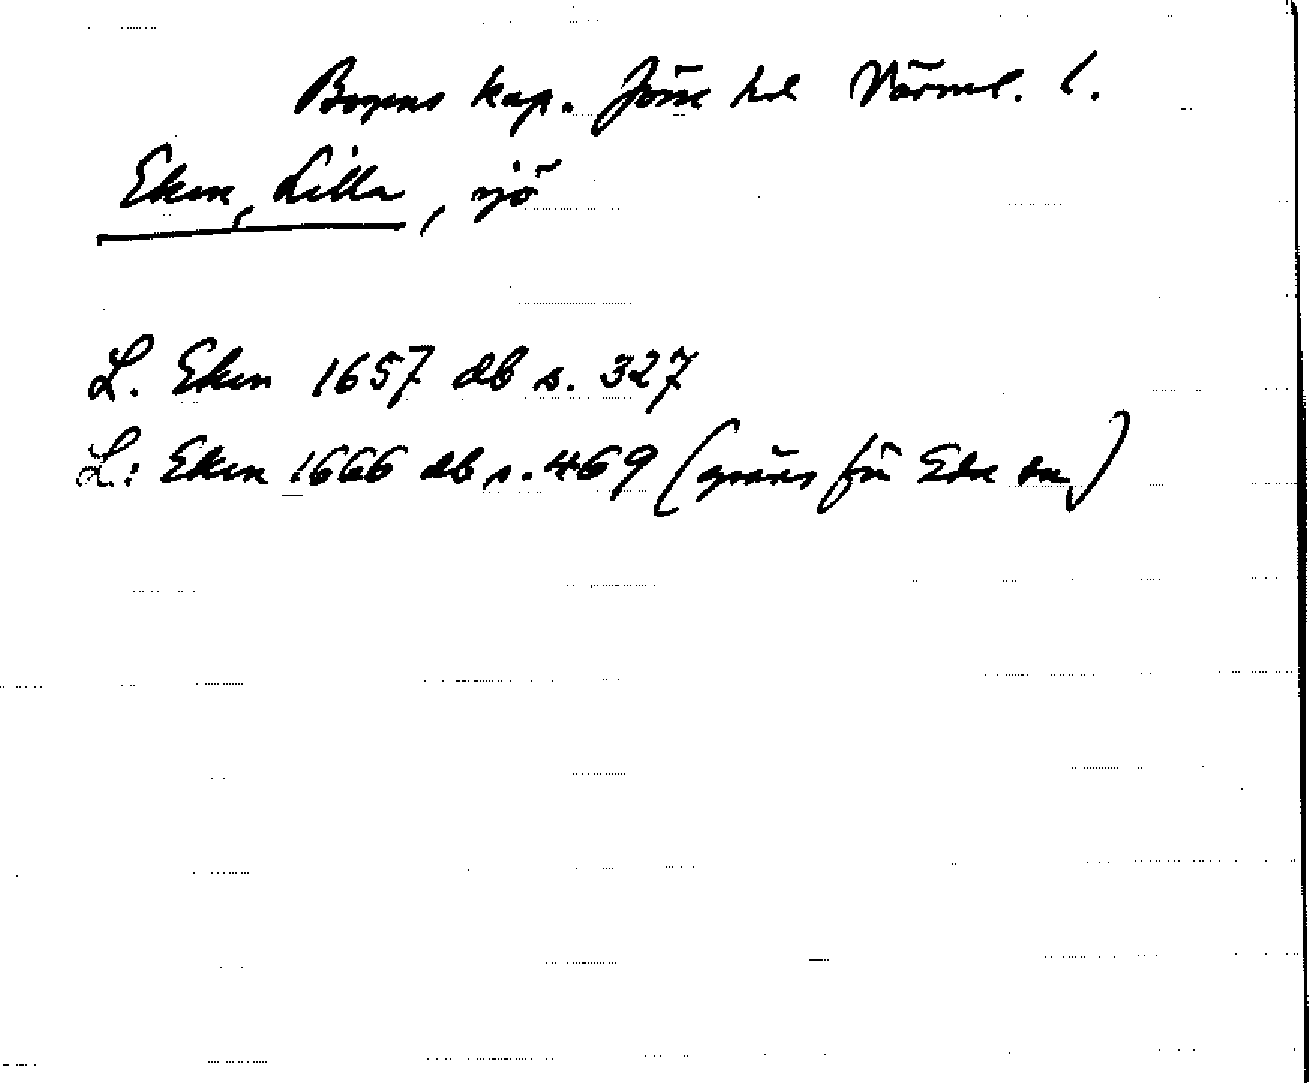 Bogens kap. Jösse hd Värml. l.
Eken, Lilla, sjö
L. Eken 1657 db s. 327
L: Eken 1666 db s. 469 (gräns för Eda sn)